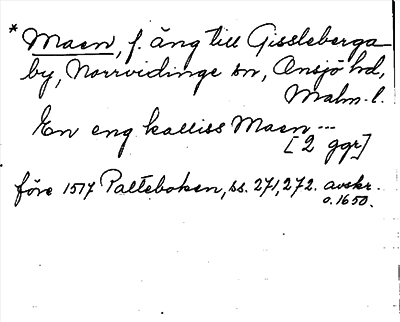 * Maen, f. äng till Gissleberga
by, Norrvidinge sn, Onsjö hd,
Malm. l.
En eng kalliss Maen ...
[2 ggr]
före 1517 Palteboken, ss. 271, 272. avskr.
o. 1650.